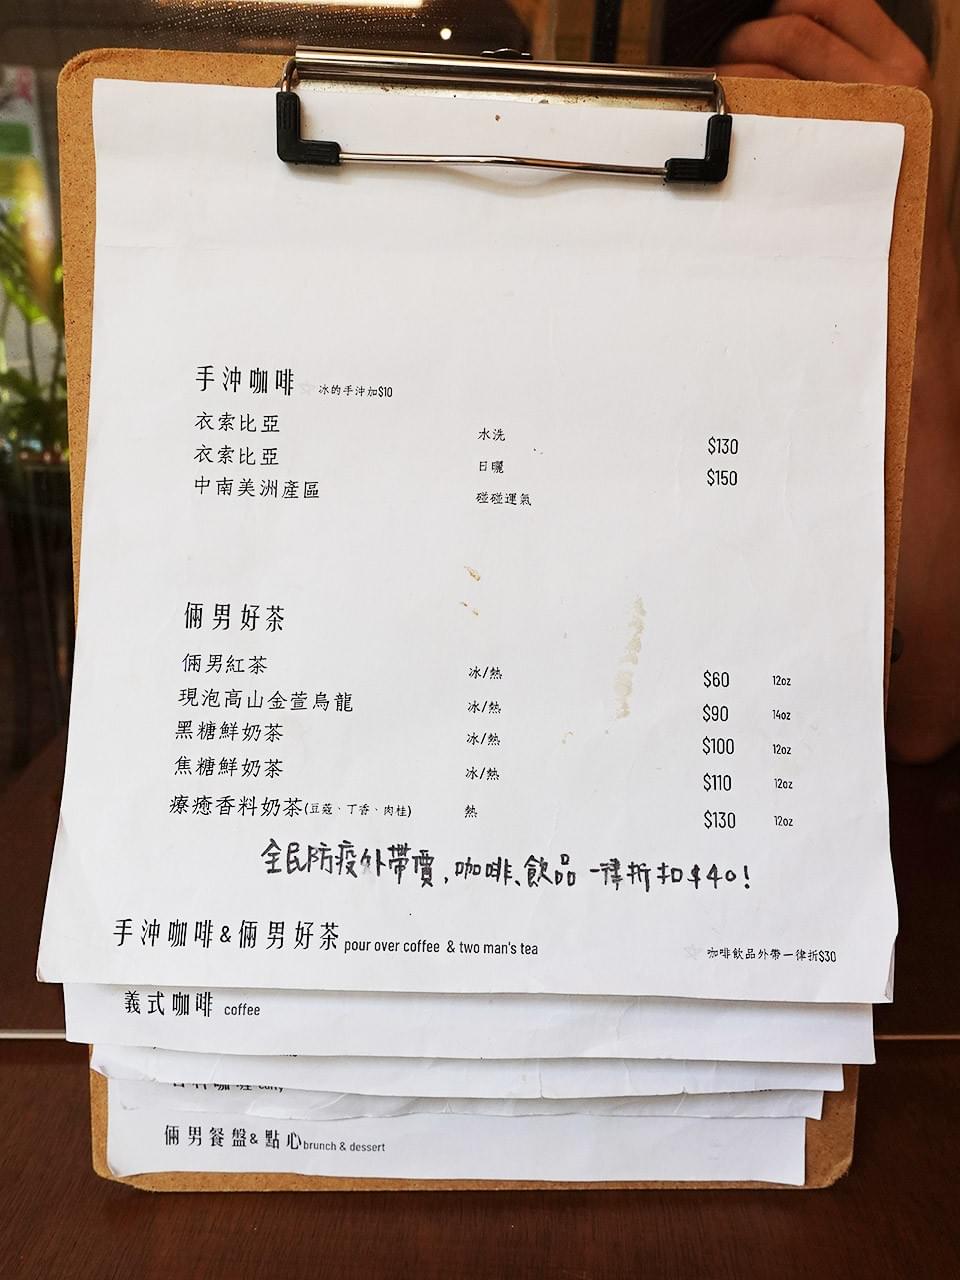 手沖咖啡 冰的手沖加$10
衣索比亞 水洗 $130
衣索比亞 日曬 $150
中南美洲產區 碰碰運氣
倆男好茶
倆男紅茶 冰/熱 $60 12oz
現泡高山金萱烏龍 冰/熱 $90 14oz
黑糖鮮奶茶 冰/熱 $100 12oz
焦糖鮮奶茶 冰/熱 $110 12oz
療癒香料奶茶(豆蔻、丁香、肉桂) 熱 $130 12oz
全民防疫外帶價,咖啡、飲品一律折扣$40!
手沖咖啡&倆男好茶 pour over coffee & two man's tea 咖啡飲品外帶一律折$30
義式咖啡 coffee
倆男餐盤&點心 brunch & dessert